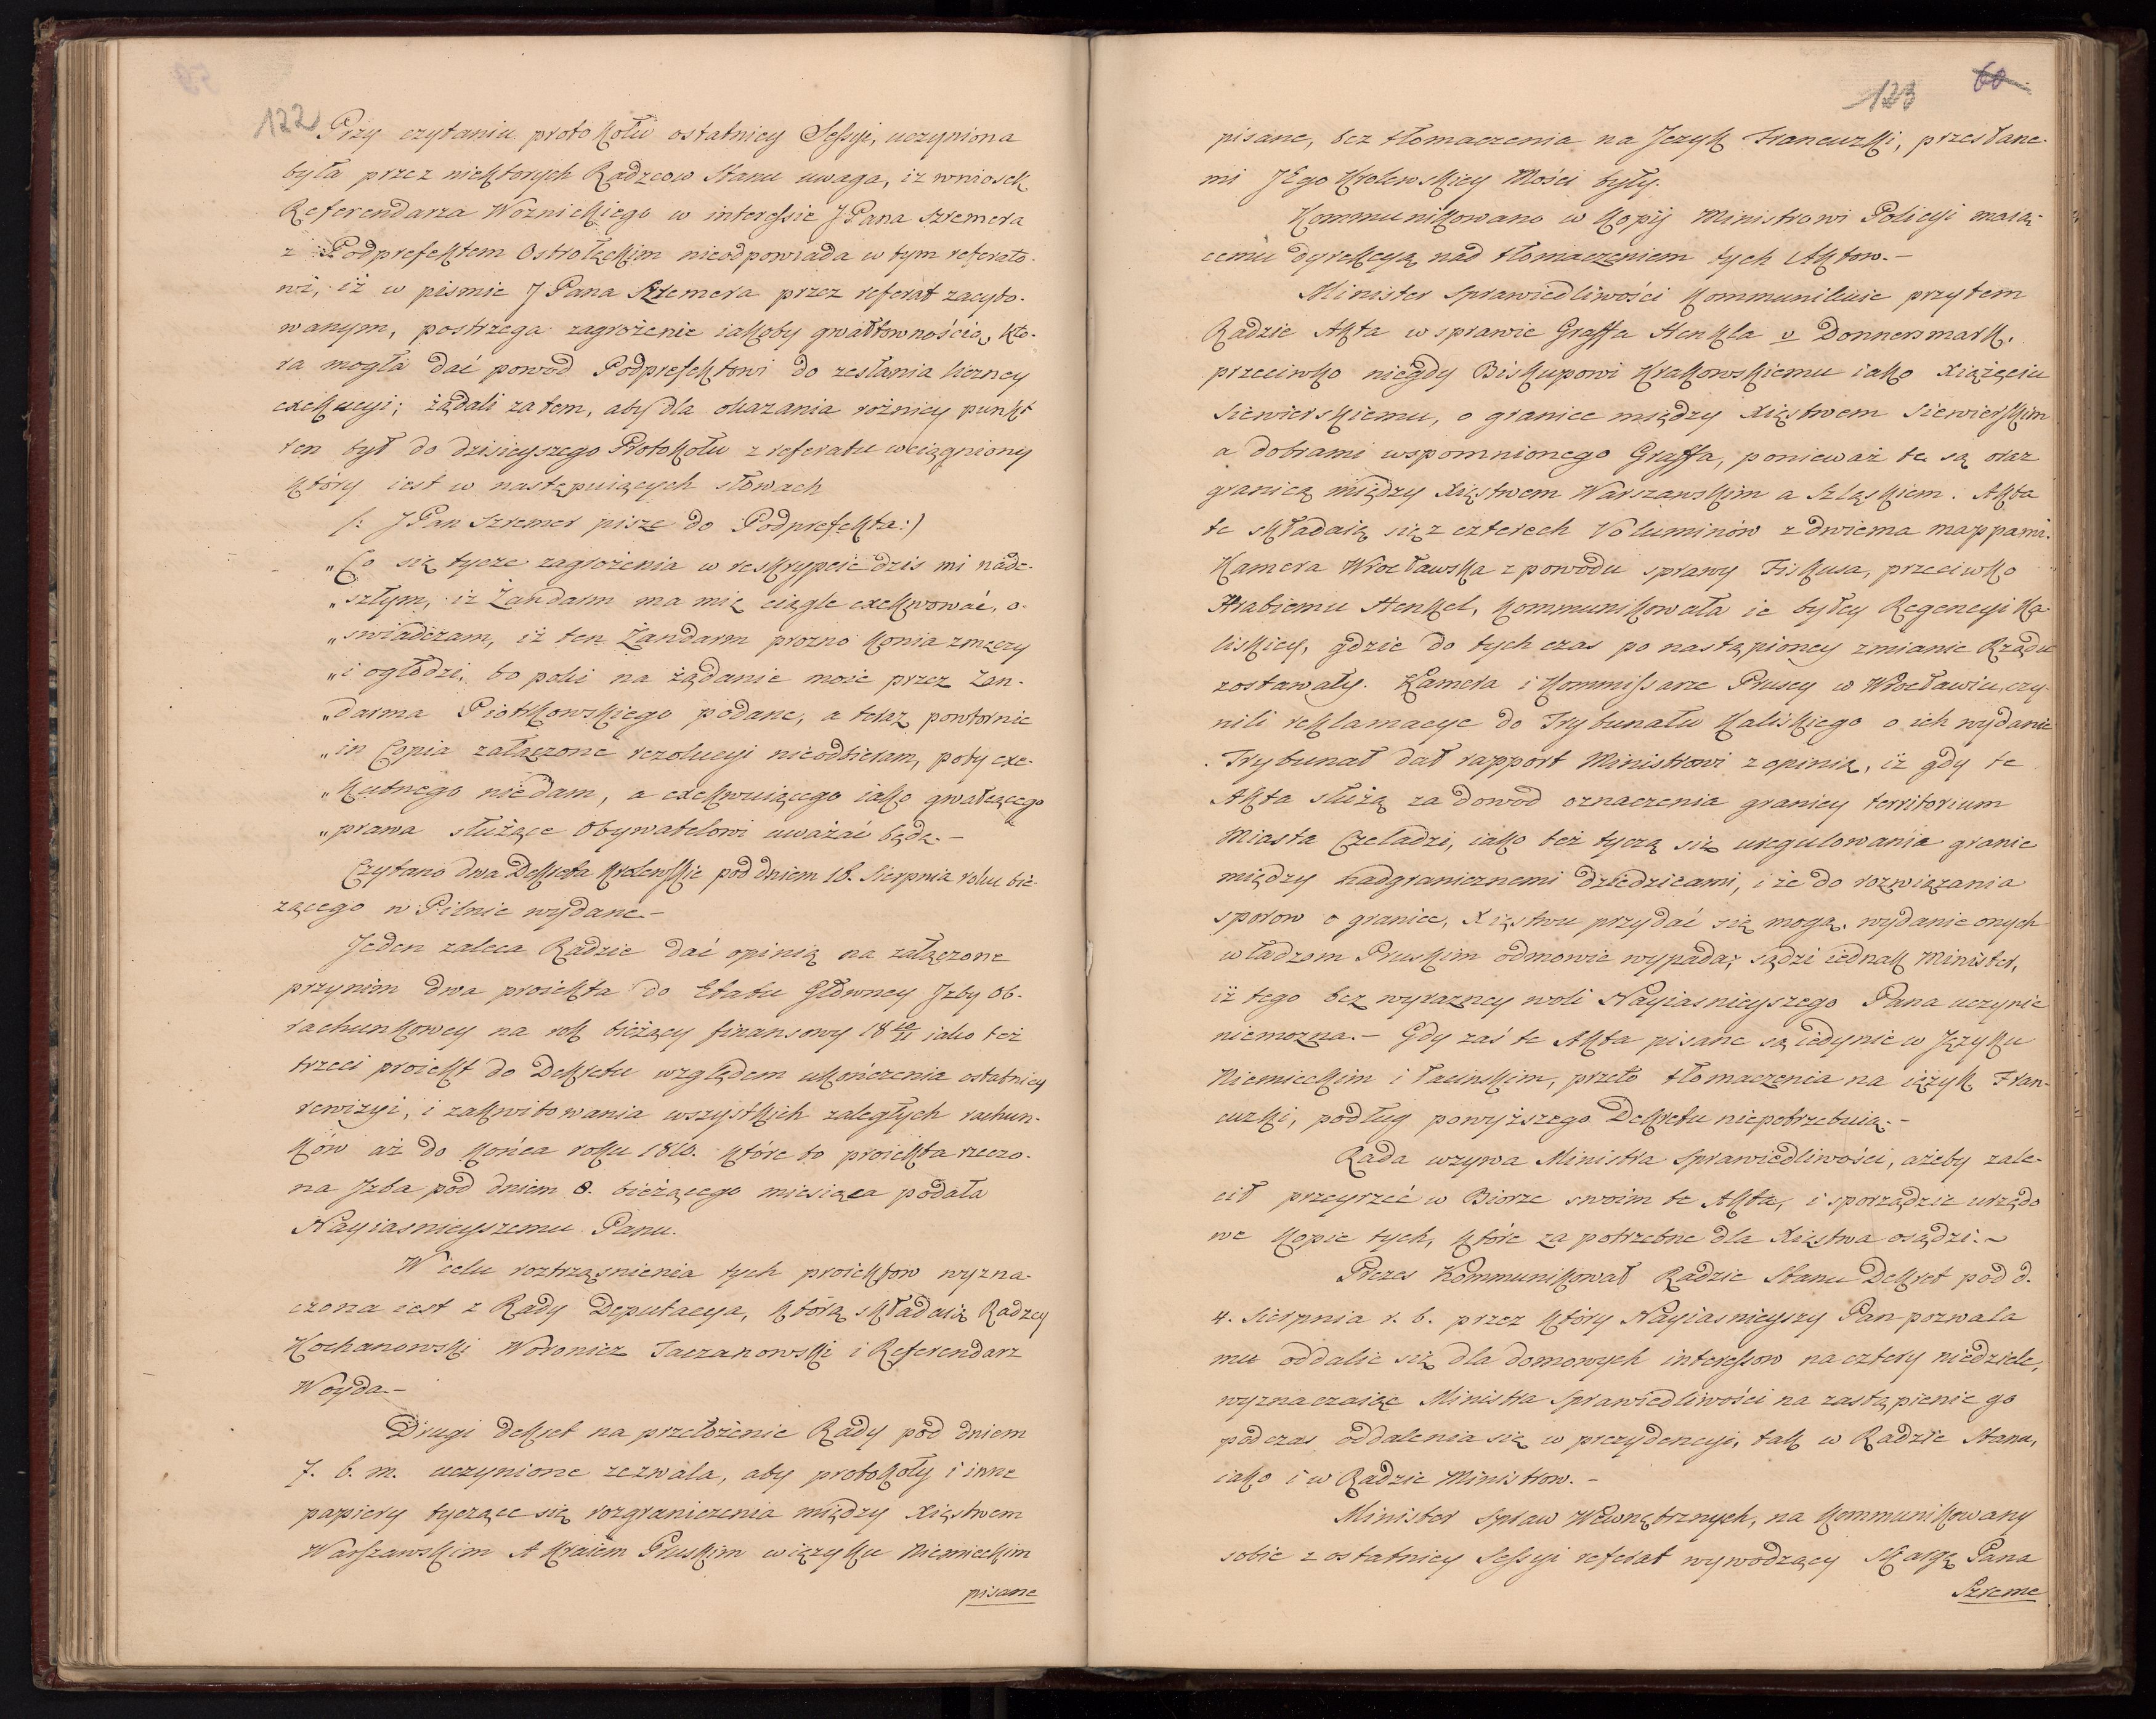 122
Przy czytaniu protokołu ostatniey Sessyi, uczyniona
była przez niektorych Radzcow Stanu uwaga, iz wniosek
Referendarza Woznickiego w interessie JPana Szremera
z Podprefektem Ostrołęckim nieodpowiada w tym referato-
wi, iż w pismie JPana Szremera przez referat zacyto-
wanym, postrzega zagrożenie iakoby gwałtownością, kto-
ra mogła dać powod Podprefektowi do zesłania liczney
exekucyi; żądali zatem, aby dla okazania rożnicy punkt
ten był do dzisieyszego Protokołu z referatu wciągniony
który iest w następuiących słowach
/: JPan Szremer pisze do Podprefekta :/
„Co się tycze zagrożenia w reskrypcie dzis mi nade-
„szłym, iż Żandarm ma mię ciągle exekwować, o-
„swiadczam, iż ten Żandarm prozno konia zmęczy
„i ogłodzi, bo poki na żądanie moie przez Żan-
„darma Piotrkowskiego podane, a teraz powtornie
„in Copia załączone rezolucyi nieodbieram, poty exe-
„kutnego niedam, a exekwuiącego iako gwałcącego
„prawa służące Obywatelowi uważać będę.-
Czytano dwa Dekreta Krolewskie pod dniem 16. Sierpnia roku bie-
żącego w Pilnic wydane.-
Jeden zaleca Radzie dać opinią na załączone
przynim dwa proiekta do Etatu Głowney Jzby Ob-
rachunkowey na rok bieżący finansowy 18 10/11 iako też
trzeci proiekt do Dekretu względem ukończenia ostatniey
rewizyi, i zakwitowania wszystkich zaległych rachun-
ków aż do końca roku 1810. które to proiekta rzeczo-
na Jzba pod dniem 8. bieżącego miesiąca podała
Nayiasnieyszemu Panu.
W celu roztrząsnienia tych proiektow wyzna-
czona iest z Rady Deputacya, którą składaią Radzcy
Kochanowski Woronicz Taczanowski i Referendarz
Woyda.-
Drugi dekret na przełożenie Rady pod dniem
7. b. m. uczynione zezwala, aby protokoły i inne
papiery tyczące się rozgraniczenia między Xięstwem
Warszawskim A Kraiem Pruskim w ięzyku Niemieckim
pisane
123
60
pisane, bez tłomaczenia na Jezyk Francuzki, przesłane-
mi JEgo Krolewskiey Mości były.
Kommunikowano w kopij Ministrowi Policyi maią-
cemu dyrekcyą nad tłomaczeniem tych Aktow.-
Minister Sprawiedliwości kommunikuie przytem
Radzie Akta w sprawie Graffa Henkla v Donnersmark.
przeciwko niegdy Biskupowi Krakowskiemu iako Xiążęciu
Siewierskiemu, o granice między Xięstwem Siewierskim
a dobrami wspomnionego Graffa, ponieważ te są oraz
granicą między Xięstwem Warszawskim a Szląskiem. Akta
te składaią się z czterech Voluminów z dwiema mappami.
Kamera Wrocławska z powodu sprawy Fiskusa, przeciwko
Hrabiemu Henkel, kommunikowała ie byłey Regencyi Ka-
liskiey, gdzie do tych czas po nastąpioney zmianie Rządu
zostawały. Kamera i Kommissarze Pruscy w Wrocławiu, czy-
nili reklamacye do Trybunału Kaliskiego o ich wydanie
Trybunał dał rapport Ministrowi z opinią, iż gdy te
Akta służą za dowod oznaczenia granicy territorium
Miasta Czeladzi, iako też tyczą się uregulowania granic
między nadgranicznemi dziedzicami, i że do rozwiązania
sporow o granice, Xięstwu przydać się mogą, wydanie onych
władzom Pruskim odmowić wypada; sądzi iednak Minister,
iż tego bez wyrazney woli Nayiasnieyszego Pana uczynić
niemozna.- Gdy zaś te Akta pisane są iedynie w Języku
Niemieckim i łacinskim, przeto tłomaczenia na ięzyk Fran-
cuzki, podług powyższego Dekretu niepotrzebuią.-
Rada wzywa Ministra Sprawiedliwości, ażeby zale-
cił przeyrzeć w Biorze swoim te Akta, i sporządzić urzędo
we kopie tych, które za potrzebne dla Xięstwa osądzi.-
Prezes Kommunikował Radzie Stanu Dekret pod d.
4. Sierpnia r. b. przez który Nayiasnieyszy Pan pozwala
mu oddalić się dla domowych interessow na cztery niedziele,
wyznaczaiąc Ministra Sprawiedliwości na zastąpienie go
podczas oddalenia się w prezydencyi, tak w Radzie Stanu,
iako i w Radzie Ministrow.-
Minister Spraw Wewnętrznych, na kommunikowany
sobie z ostatniey Sessyi referat wywodzący skargę Pana
Szreme